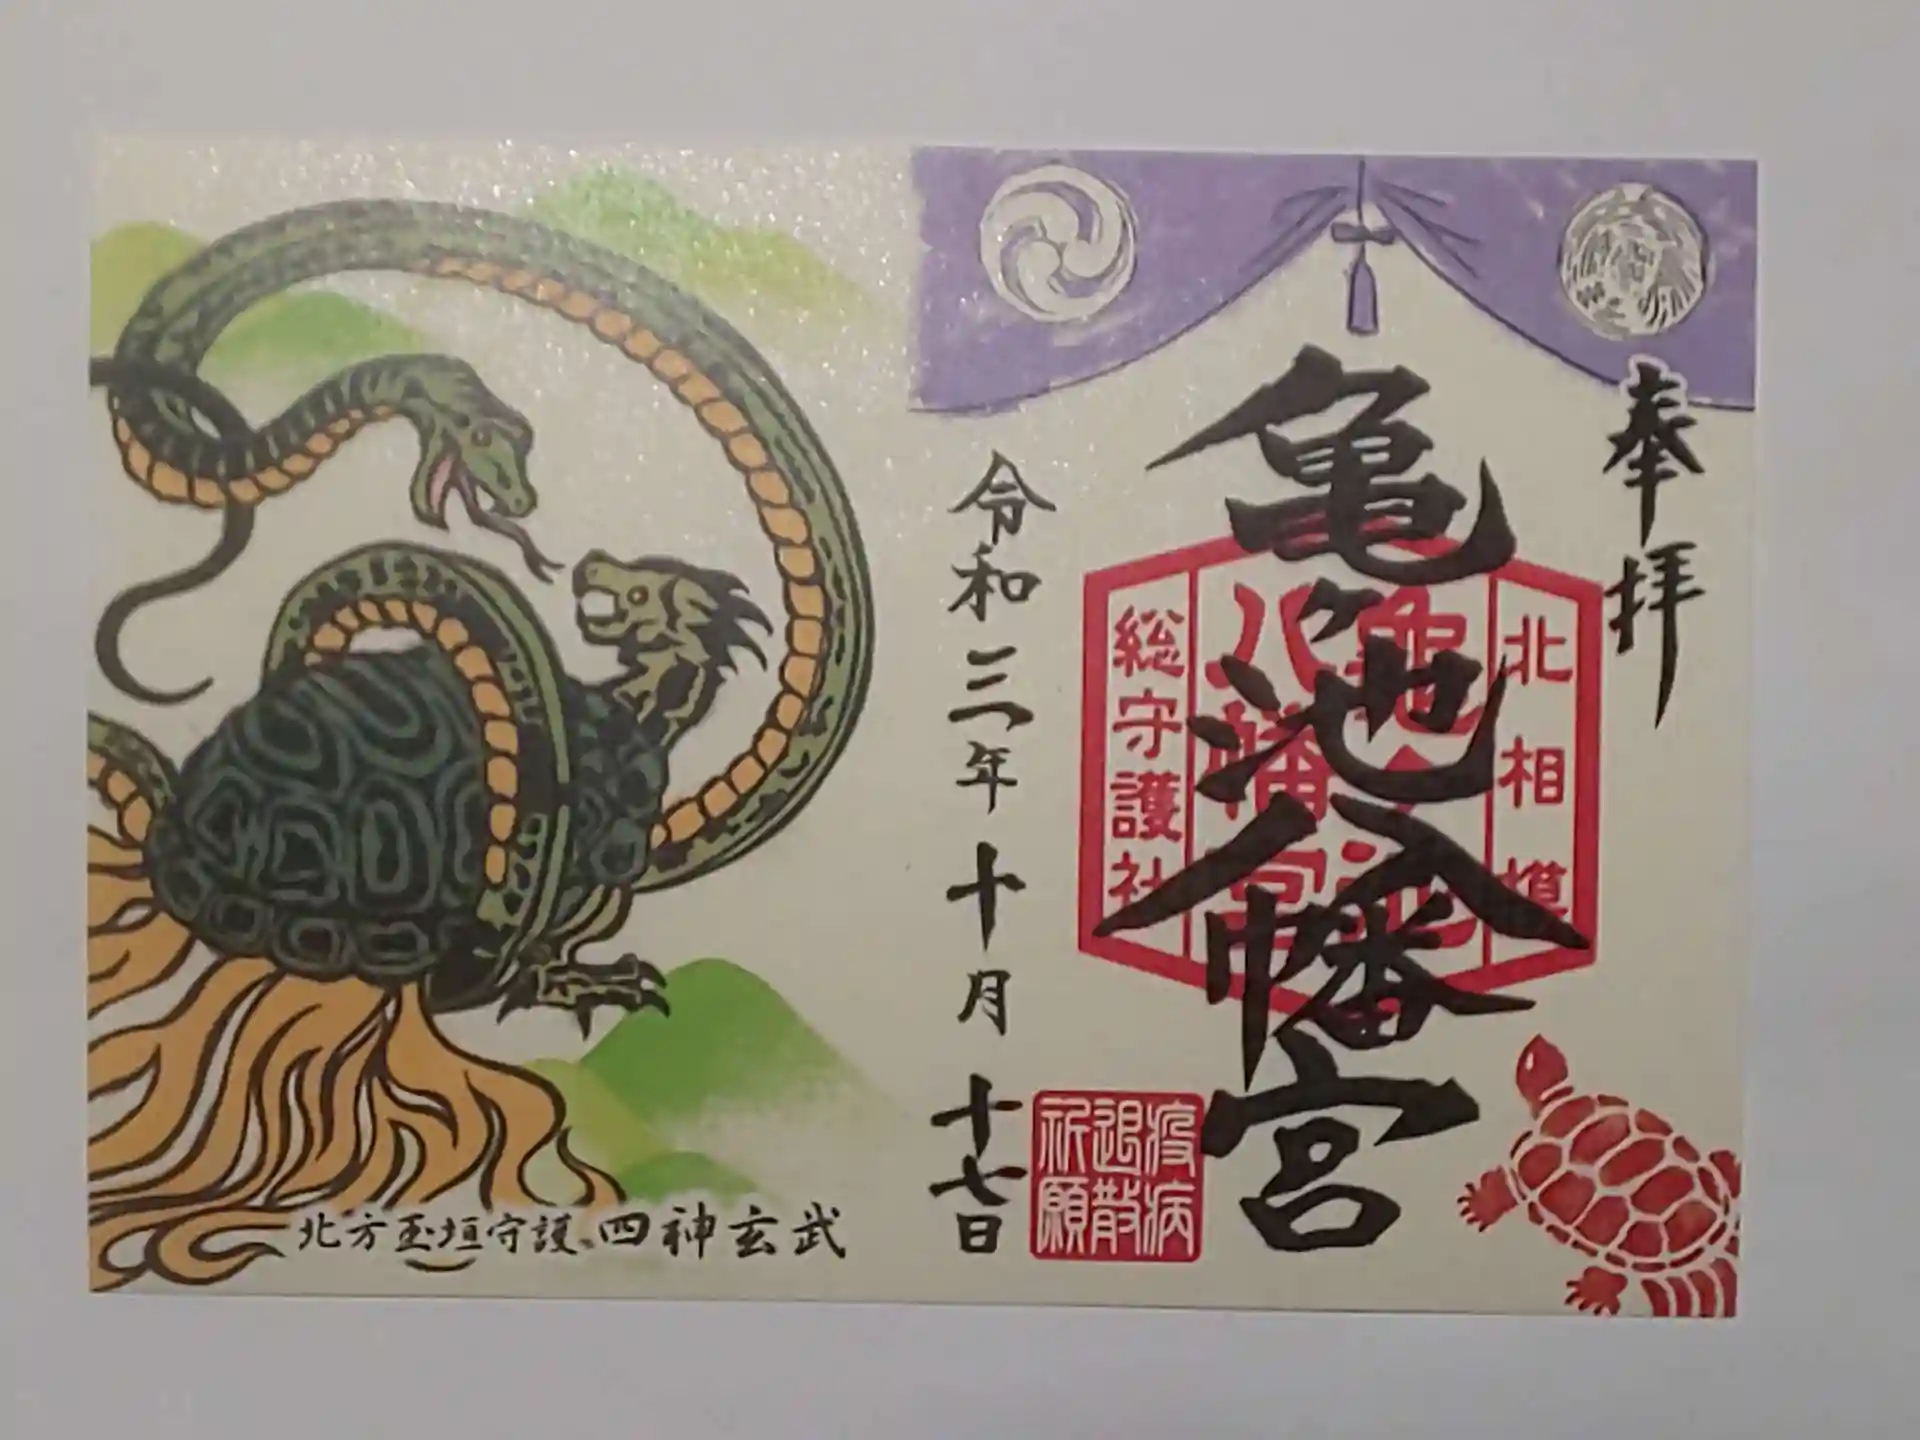 奉拝
亀ヶ池八幡宮
北相模
亀ヶ池
八幡宮
総守護社
疫病
退散
祈願
令和三年十月十七日
北方玉垣守護 四神玄武